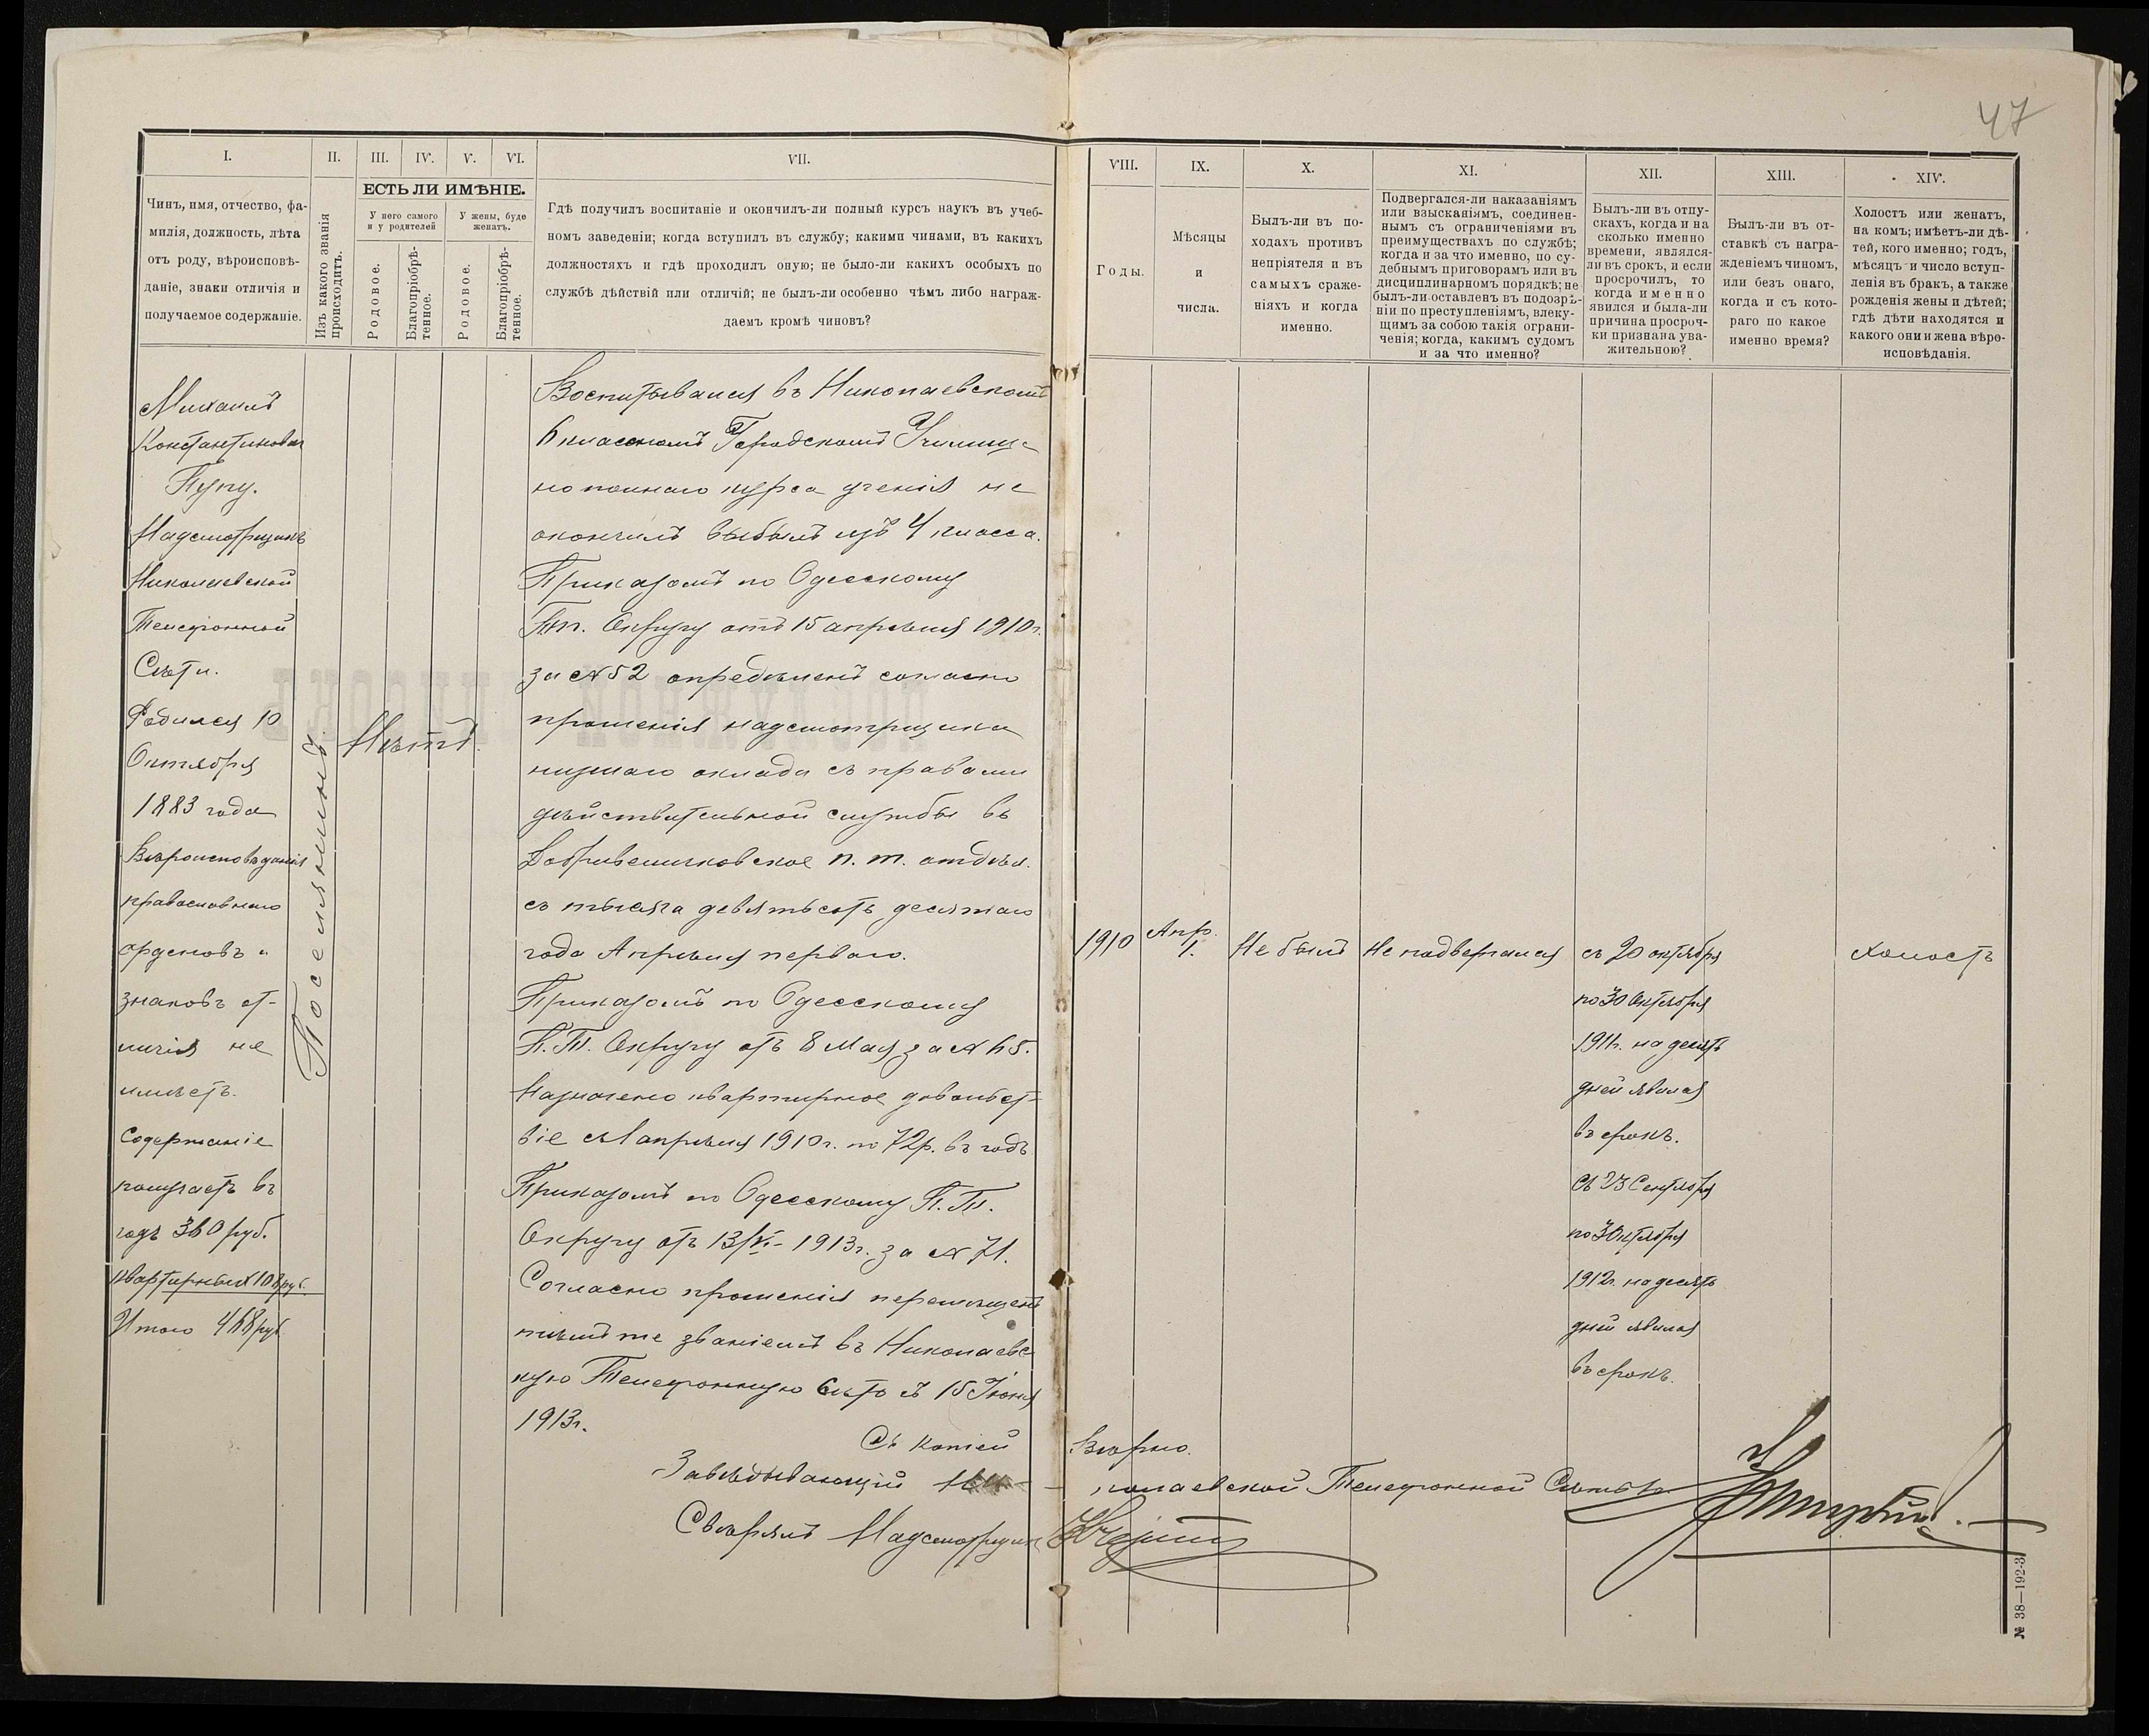 47
I.
II.
III.
IV.
V.
VI.
VII.
ЕСТЬ ЛИ ИМѢНІЕ.
Чинъ, имя, отчество, фа-
милія, должность, лѣта
отъ роду, вѣроисповѣ-
даніе, знаки отличія и
получаемое содержаніе.
Изъ какого званія
происходитъ.
У него самого
и у родителей
У жены, буде
женатъ.
Родовое.
Благопріобрѣ-
тенное.
Родовое.
Благопріобрѣ-
тенное.
Гдѣ получилъ воспитаніе и окончилъ-ли полный курсъ наукъ въ учеб-
номъ заведеніи; когда вступилъ въ службу; какими чинами, въ какихъ
должностяхъ и гдѣ проходилъ оную; не было-ли какихъ особыхъ по
службѣ дѣйствій или отличій; не былъ-ли особенно чѣмъ либо награж-
даемъ кромѣ чиновъ?
VIII.
IX.
X.
XI.
XII.
XIII.
XIV.
Годы.
Мѣсяцы
и
числа.
Былъ-ли въ по-
ходахъ противъ
непріятеля и въ
самыхъ сраже-
ніяхъ и когда
именно.
Подвергался-ли наказаніямъ
или взысканіямъ, соединен-
нымъ съ ограниченіями въ
преимуществахъ по службѣ;
когда и за что именно, по су-
дебнымъ приговорамъ или въ
дисциплинарномъ порядкѣ; не
былъ-ли оставленъ въ подозрѣ-
ніи по преступленіямъ, влеку-
щимъ за собою такія ограни-
ченія; когда, какимъ судомъ
и за что именно?
Былъ-ли въ отпу-
скахъ, когда и на
сколько именно
времени, являлся-
ли въ срокъ, и если
просрочилъ, то
когда именно
явился и была-ли
причина просроч-
ки признана ува-
жительною?
Былъ-ли въ от-
ставкѣ съ награ-
жденіемъ чиномъ,
или безъ онаго,
когда и съ кото-
раго по какое
именно время?
Холостъ или женатъ,
на комъ; имѣетъ-ли дѣ-
тей, кого именно; годъ,
мѣсяцъ и число вступ-
ленія въ бракъ, а также
рожденія жены и дѣтей;
гдѣ дѣти находятся и
какого они и жена вѣро-
исповѣданія.
Михаилъ
Константиновичъ
Пупу.
Надсмотрщикъ
Николаевской
Телефонной
Сѣти.
Родился 10
Октября
1883 года
Вѣроисповѣданія
православнаго
орденовъ и
знаковъ от-
личія не
имѣетъ.
Содержаніе
получаетъ въ
годъ 360 руб.
квартирныхъ 108 руб.
Итого 468 руб
Поселянинъ.
Нѣтъ.
Воспитывался въ Николаевскомъ
6 классномъ Городскомъ Училищѣ
но полнаго курса ученія не
окончилъ выбылъ изъ 4 класса.
Приказомъ по Одесскому
П.т. Округу отъ 15 апрѣля 1910 г.
за № 52 опредѣленъ согласно
прошенія надсмотрщика
низшаго оклада съ правами
дѣйствительной службы въ
Добривеличковское п. т. отдѣл.
съ тысяча девятьсотъ десятаго
года Апрѣля перваго.
Приказомъ по Одесскому
П.Т. Округу отъ 8 Мая за № 65.
Назначено квартирное довольст-
віе съ 1 апрѣля 1910 г. по 72 р. въ годъ
Приказомъ по Одесскому П.Т.
Округу отъ 13/VI - 1913 г. за № 71.
Согласно прошенія перемѣщенъ
тѣмъ же званіемъ въ Николаевс
кую Телефонную Сѣть съ 15 Іюня
1913 г.
1910
Апр.
1.
Не былъ
Не подвергался
съ 20 октября
по 30 Октября
1911 г. на десять
дней явился
въ срокъ.
Съ 23 Сентября
по 3 Октября
1912 г. на десять
дней явился
въ срокъ.
холостъ
Съ копіей Вѣрно.
Завѣдывающій Ни-колаевской Телефонной Сѣтью
Свѣрялъ Надсмотрщикъ
№ 38—192-3